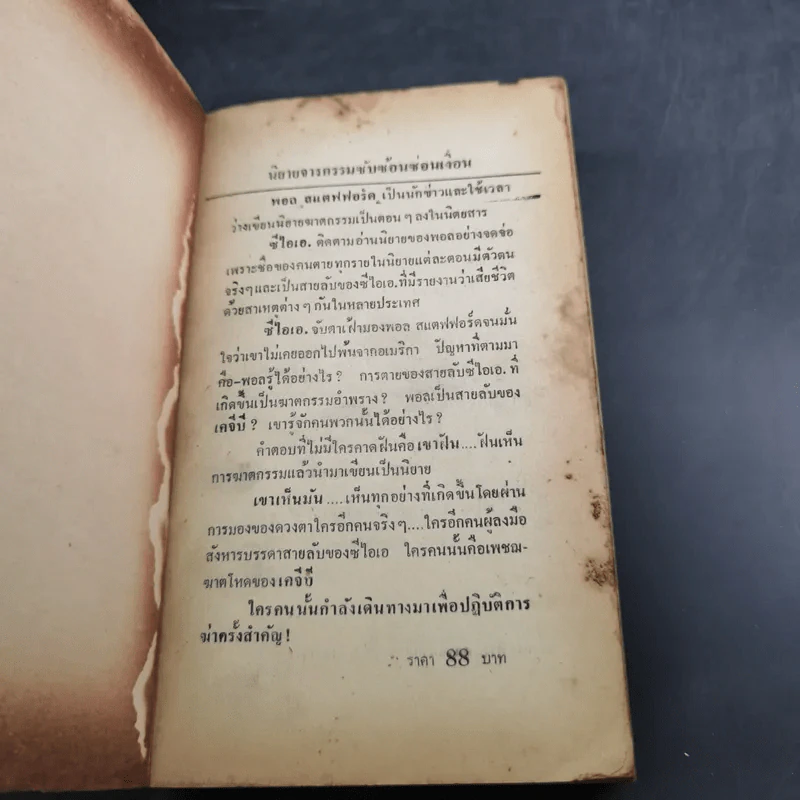 นิยายจารกรรมซับซ้อนซ่อนเงื่อน
พอล สแตฟฟอร์ด เป็นนักข่าวและใช้เวลา
ว่างเขียนนิยายฆาตกรรมเป็นตอน ๆ ลงในนิตยสาร
ซีไอเอ. ติดตามอ่านนิยายของพอลอย่างจดจ่อ
เพราะชื่อของคนตายทุกรายในนิยายแต่ละตอนมีตัวตน
จริงๆ และเป็นสายลับของซีไอเอ. ที่มีรายงานว่าเสียชีวิต
ด้วยสาเหตุต่าง ๆ กันในหลายประเทศ
ซีไอเอ. จับตาเฝ้ามองพอล สแตฟฟอร์ดจนมั่น
ใจว่าเขาไม่เคยออกไปพ้นจากอเมริกา ปัญหาที่ตามมา
คือ-พอลรู้ได้อย่างไร ? การตายของสายลับซีไอเอ. ที่
เกิดขึ้นเป็นฆาตกรรมอำพราง ? พอลเป็นสายลับของ
เคจีบี ? เขารู้จักคนพวกนั้นได้อย่างไร ?
คำตอบที่ไม่มีใครคาดฝันคือ เขาฝัน .... ฝันเห็น
การฆาตกรรมแล้วนำมาเขียนเป็นนิยาย
เขาเห็นมัน .... เห็นทุกอย่างที่เกิดขึ้นโดยผ่าน
การมองของดวงตาใครอีกคนจริง ๆ .... ใครอีกคนผู้ลงมือ
สังหารบรรดาสายลับของซีไอเอ ใครคนนั้นคือเพชฌ-
ฆาตโหดของ เคจีบี
ใครคนนั้นกำลังเดินทางมาเพื่อปฏิบัติการ
ฆ่าครั้งสำคัญ !
ราคา 88 บาท